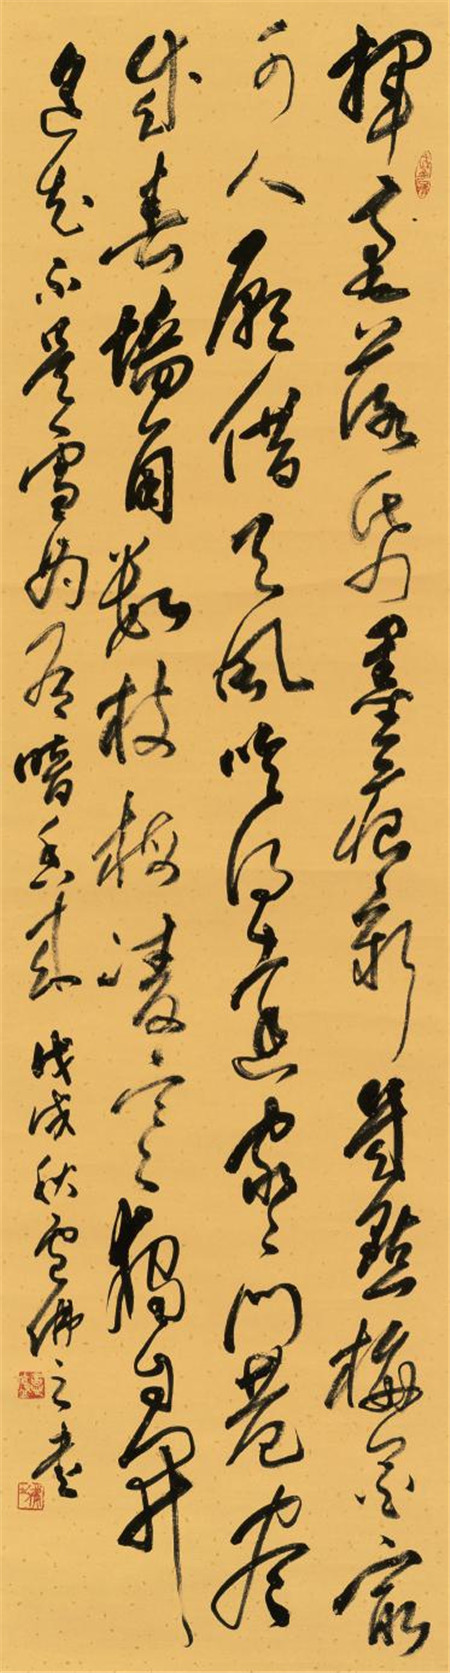 揮毫落紙墨痕新幾點梅花最
可人願借天風吹得遠家々門巷盡
成春墻角數枝梅凌寒獨自開
遥知不是雪為有暗香來 戊戌秋佛之書